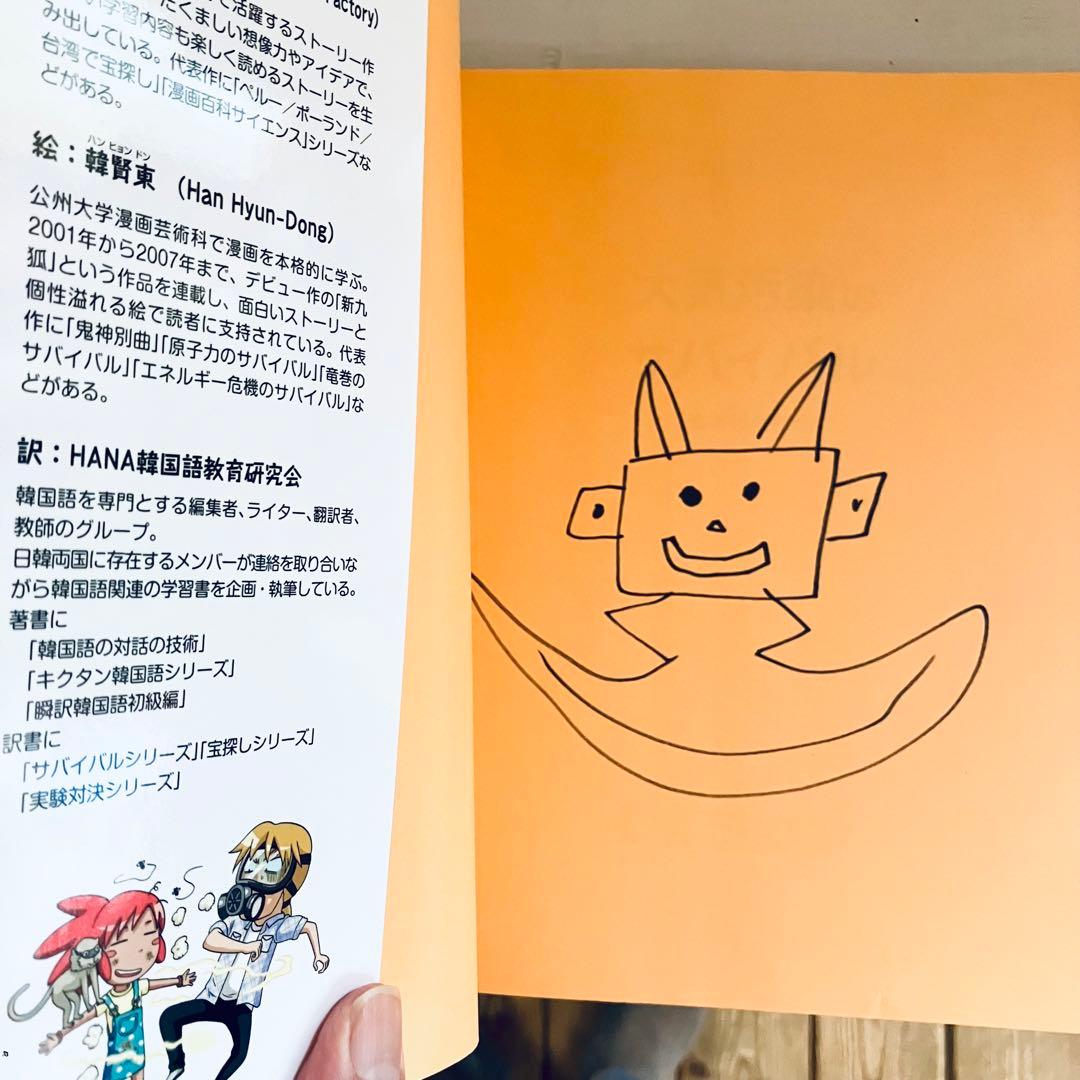 actory)
で活躍するストーリー作
たくましい想像力やアイデアで、
学習内容も楽しく読めるストーリーを生
み出している。代表作に「ペルー/ポーランド/
台湾で宝探し」「漫画百科サイエンス」シリーズな
どがある。
ハン ヒョン ドン
絵：韓賢東 (Han Hyun-Dong)
公州大学漫画芸術科で漫画を本格的に学ぶ。
2001年から2007年まで、デビュー作の「新九
狐」という作品を連載し、面白いストーリーと
個性溢れる絵で読者に支持されている。代表
作に「鬼神別曲」「原子力のサバイバル」「竜巻の
サバイバル」「エネルギー危機のサバイバル」な
どがある。
訳：HANA韓国語教育研究会
韓国語を専門とする編集者、ライター、翻訳者、
教師のグループ。
日韓両国に存在するメンバーが連絡を取り合いな
がら韓国語関連の学習書を企画・執筆している。
著書に
「韓国語の対話の技術」
「キクタン韓国語シリーズ」
「瞬訳韓国語初級編」
訳書に
「サバイバルシリーズ」「宝探しシリーズ」
「実験対決シリーズ」